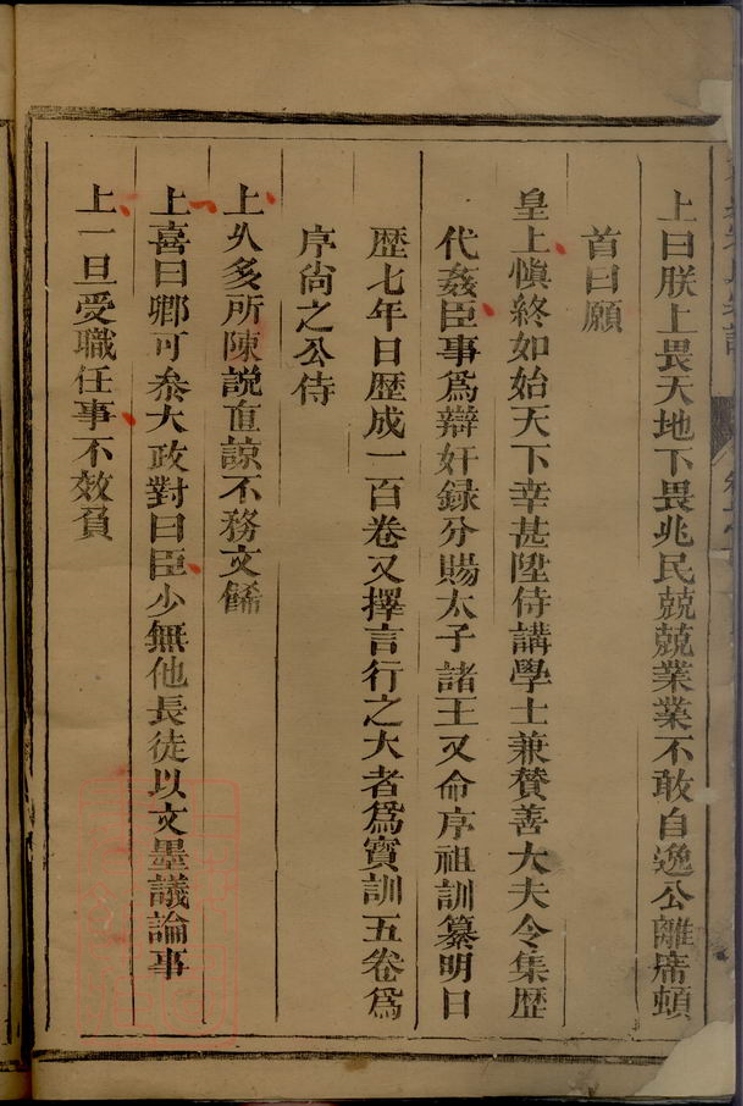 上曰朕上畏天地下畏兆民兢兢業業不敢自逸公離席頓
首曰願
皇上慎終如始天下幸甚陞侍講學士兼贊善大夫令集歷
代姦臣事爲辯奸録分賜太子諸王又命序祖訓纂明日
歴七年日歴成一百卷又擇言行之大者爲寳訓五卷爲
序尙之公侍
上久多所陳説直諒不務文餙
上喜曰卿可叅大政對曰臣少無他長徒以文墨議論事
上一旦受職任事不效負